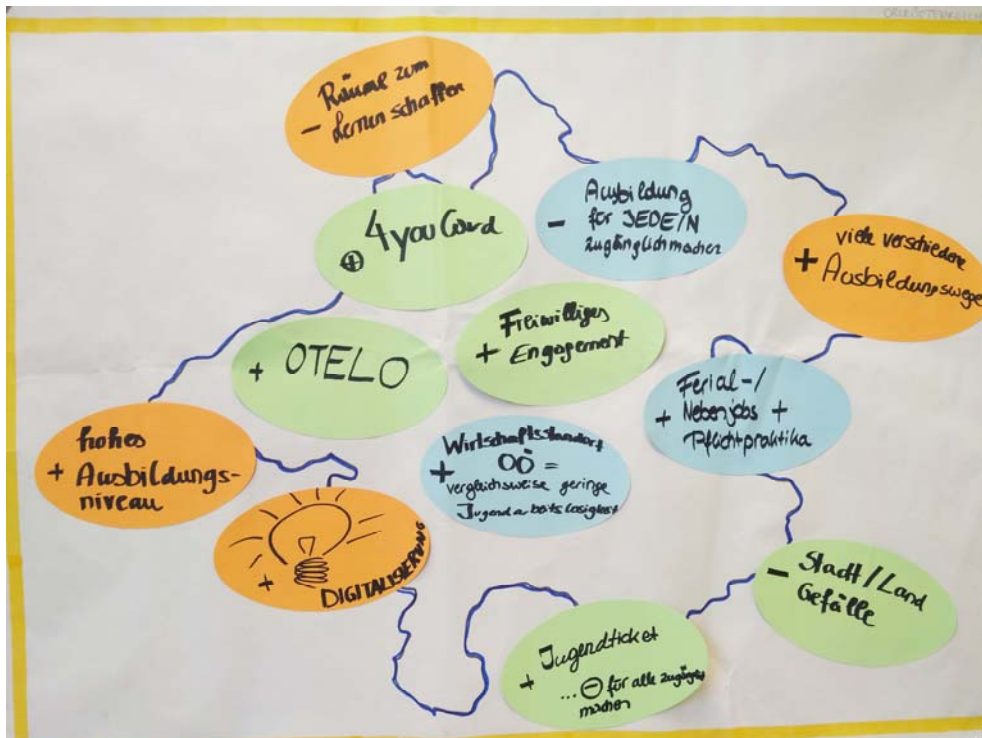 OBERÖSTERREICH
Räume zum
- Lernen schaffen
⊕ 4youCard
Ausbildung
- für JEDE/N
zugänglich machen
viele verschiedene
+ Ausbildungswege
+ OTELO
Freiwilliges
+ Engagement
Ferial-/
+ Nebenjobs +
Pflichtpraktika
hohes
+ Ausbildungs-
niveau
Wirtschaftsstandort
+ OÖ =
vergleichsweise geringe
Jugendarbeitslosigkeit
+ DIGITALISIERUNG
- Stadt/Land
Gefälle
+ Jugendticket
... ⊖ für alle zugängig
machen